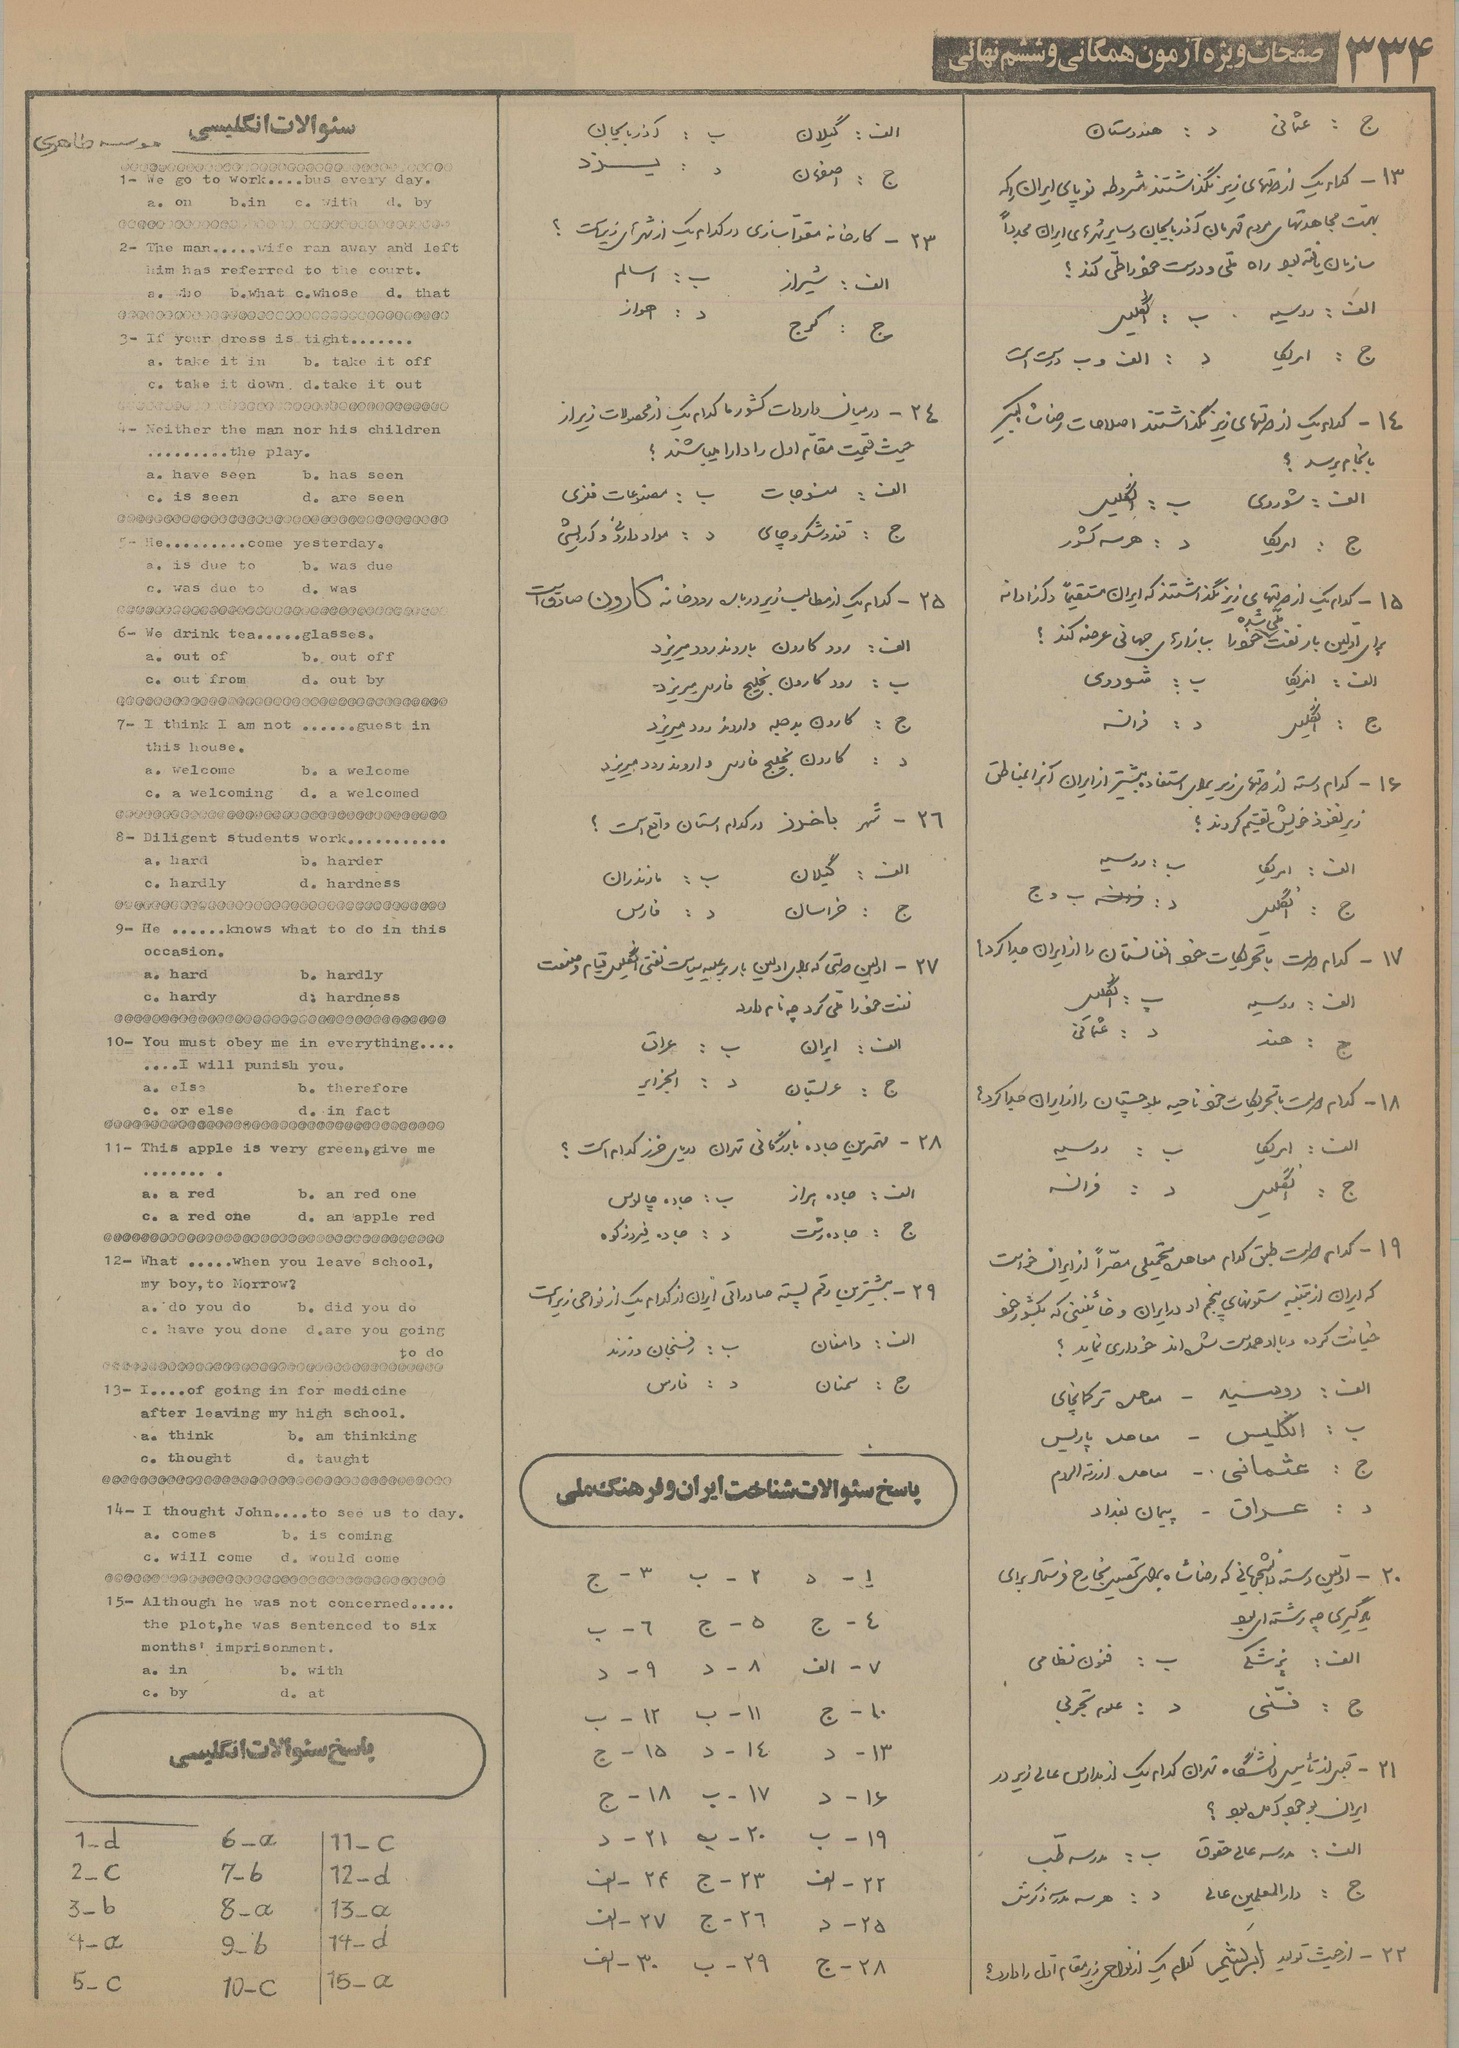 صفحات ویژه آزمون همگانی و ششم نهائی ۳۳۴
ج : عثمانی د : هندوستان
۱۳ - کدام یک از دولتهای زیر نگذاشتند مشروطه نوپای ایران که
بهمت مجاهدتهای مردم قهرمان آذربایجان و سایر شهرهای ایران مجدداً
سازمان یافته بود راه ملی و درست خود را طی کند ؟
الف : روسیه ب : انگلیس
ج : امریکا د : الف و ب درست است
۱٤ - کدام یک از دولتهای زیر نگذاشتند اصلاحات رضاشاه کبیر
بانجام برسد ؟
الف : شوروی ب : انگلیس
ج : امریکا د : هر سه کشور
۱۵ - کدام یک از دولتهای زیر نگذاشتند که ایران مستقیماً و آزادانه
برای اولین بار نفت ملی شده خود را ببازارهای جهانی عرضه کند ؟
الف : امریکا ب : شوروی
ج : انگلیس د : فرانسه
۱۶ - کدام دسته از دولتهای زیر برای استفاده بیشتر از ایران آنرا بمناطق
زیر نفوذ خویش تقسیم کردند ؟
الف : امریکا ب : روسیه
ج : انگلیس د : ب و ج
۱۷ - کدام دولت با تحریکات خود افغانستان را از ایران جدا کرد ؟
الف : روسیه ب : انگلیس
ج : هند د : عثمانی
۱۸ - کدام دولت با تحریکات خود ناحیه بلوچستان را از ایران جدا کرد ؟
الف : امریکا ب : روسیه
ج : انگلیس د : فرانسه
۱۹ - کدام دولت طبق کدام معاهده تحمیلی مصراً از ایران خواست
که ایران از تنبیه ستونهای پنجم او در ایران و خائنینی که بکشور خود
خیانت کرده و با او همدست شده اند خودداری نماید ؟
الف : روسیه - معاهده ترکمانچای
ب : انگلیس - معاهده پاریس
ج : عثمانی - معاهده ارزنة الروم
د : عراق - پیمان بغداد
۲۰ - اولین دسته دانشجویانی که رضا شاه برای تحصیل بخارج فرستاد برای
یادگیری چه رشته ای بود
الف : پزشکی ب : فنون نظامی
ج : فنی د : علوم تجربی
۲۱ - قبل از تأسیس دانشگاه تهران کدام یک از مدارس عالی زیر در
ایران بوجود آمده بود ؟
الف : مدرسه عالی حقوق ب : مدرسه طب
ج : دارالمعلمین عالی د : هر سه مدرسه ذکر شده
۲۲ - از حیث تولید ابریشم کدام یک از نواحی زیر مقام اول را دارد ؟
الف : گیلان ب : آذربایجان
ج : اصفهان د : یزد
۲۳ - کارخانه مقواسازی در کدام یک از شهرهای زیر است ؟
الف : شیراز ب : اسالم
ج : کرج د : اهواز
۲٤ - در میان واردات کشور ما کدام یک از محصولات زیر از
حیث قیمت مقام اول را دارا میباشند ؟
الف : منسوجات ب : مصنوعات فلزی
ج : قند و شکر و چای د : مواد داروئی و آرایشی
۲۵ - کدام یک از مطالب زیر درباره رودخانه کارون صادق است
الف : رود کارون باروند رود میریزد
ب : رود کارون بخلیج فارس میریزد
ج : کارون بدجله و اروند رود میریزد
د : کارون بخلیج فارس و اروند رود میریزد
۲٦ - شهر باخرز در کدام استان واقع است ؟
الف : گیلان ب : مازندران
ج : خراسان د : فارس
۲۷ - اولین دولتی که برای اولین بار بر علیه سیاست نفتی انگلیس قیام و صنعت
نفت خود را ملی کرد چه نام دارد
الف : ایران ب : عراق
ج : عربستان د : الجزایر
۲۸ - مهمترین جاده بازرگانی تهران دریای خزر کدام است ؟
الف : جاده هراز ب : جاده چالوس
ج : جاده رشت د : جاده فیروزکوه
۲۹ - بیشترین رقم پسته صادراتی ایران از کدام یک از نواحی زیر است
الف : دامغان ب : رفسنجان و زرند
ج : سمنان د : فارس
پاسخ سئوالات شناخت ایران و فرهنگ ملی
۱ - د ۲ - ب ۳ - ج
٤ - ج ۵ - ج ٦ - ب
۷ - الف ۸ - د ۹ - د
۱۰ - ج ۱۱ - ب ۱۲ - ب
۱۳ - د ۱٤ - د ۱۵ - ج
۱۶ - د ۱۷ - ب ۱۸ - ج
۱۹ - ب ۲۰ - ب ۲۱ - د
۲۲ - الف ۲۳ - ج ۲۴ - الف
۲۵ - د ۲٦ - ج ۲۷ - الف
۲۸ - ج ۲۹ - ب ۳۰ - الف
سئوالات انگلیسی
موسسه طاهری
1- We go to work....bus every day.
a. on b.in c. with d. by
2- The man.....wife ran away and left
him has referred to the court.
a. who b.what c.whose d. that
3- If your dress is tight.......
a. take it in b. take it off
c. take it down d.take it out
4- Neither the man nor his children
.........the play.
a. have seen b. has seen
c. is seen d. are seen
5- He.........come yesterday.
a. is due to b. was due
c. was due to d. was
6- We drink tea.....glasses.
a. out of b. out off
c. out from d. out by
7- I think I am not ......guest in
this house.
a. welcome b. a welcome
c. a welcoming d. a welcomed
8- Diligent students work...........
a. hard b. harder
c. hardly d. hardness
9- He ......knows what to do in this
occasion.
a. hard b. hardly
c. hardy d: hardness
10- You must obey me in everything....
....I will punish you.
a. else b. therefore
c. or else d. in fact
11- This apple is very green,give me
....... .
a. a red b. an red one
c. a red one d. an apple red
12- What .....when you leave school,
my boy,to Morrow?
a. do you do b. did you do
c. have you done d.are you going
to do
13- I....of going in for medicine
after leaving my high school.
a. think b. am thinking
c. thought d. taught
14- I thought John....to see us to day.
a. comes b. is coming
c. will come d. would come
15- Although he was not concerned.....
the plot,he was sentenced to six
months' imprisonment.
a. in b. with
c. by d. at
پاسخ سئوالات انگلیسی
1-d 6-a 11-c
2-c 7-b 12-d
3-b 8-a 13-a
4-a 9-b 14-d
5-c 10-c 15-a